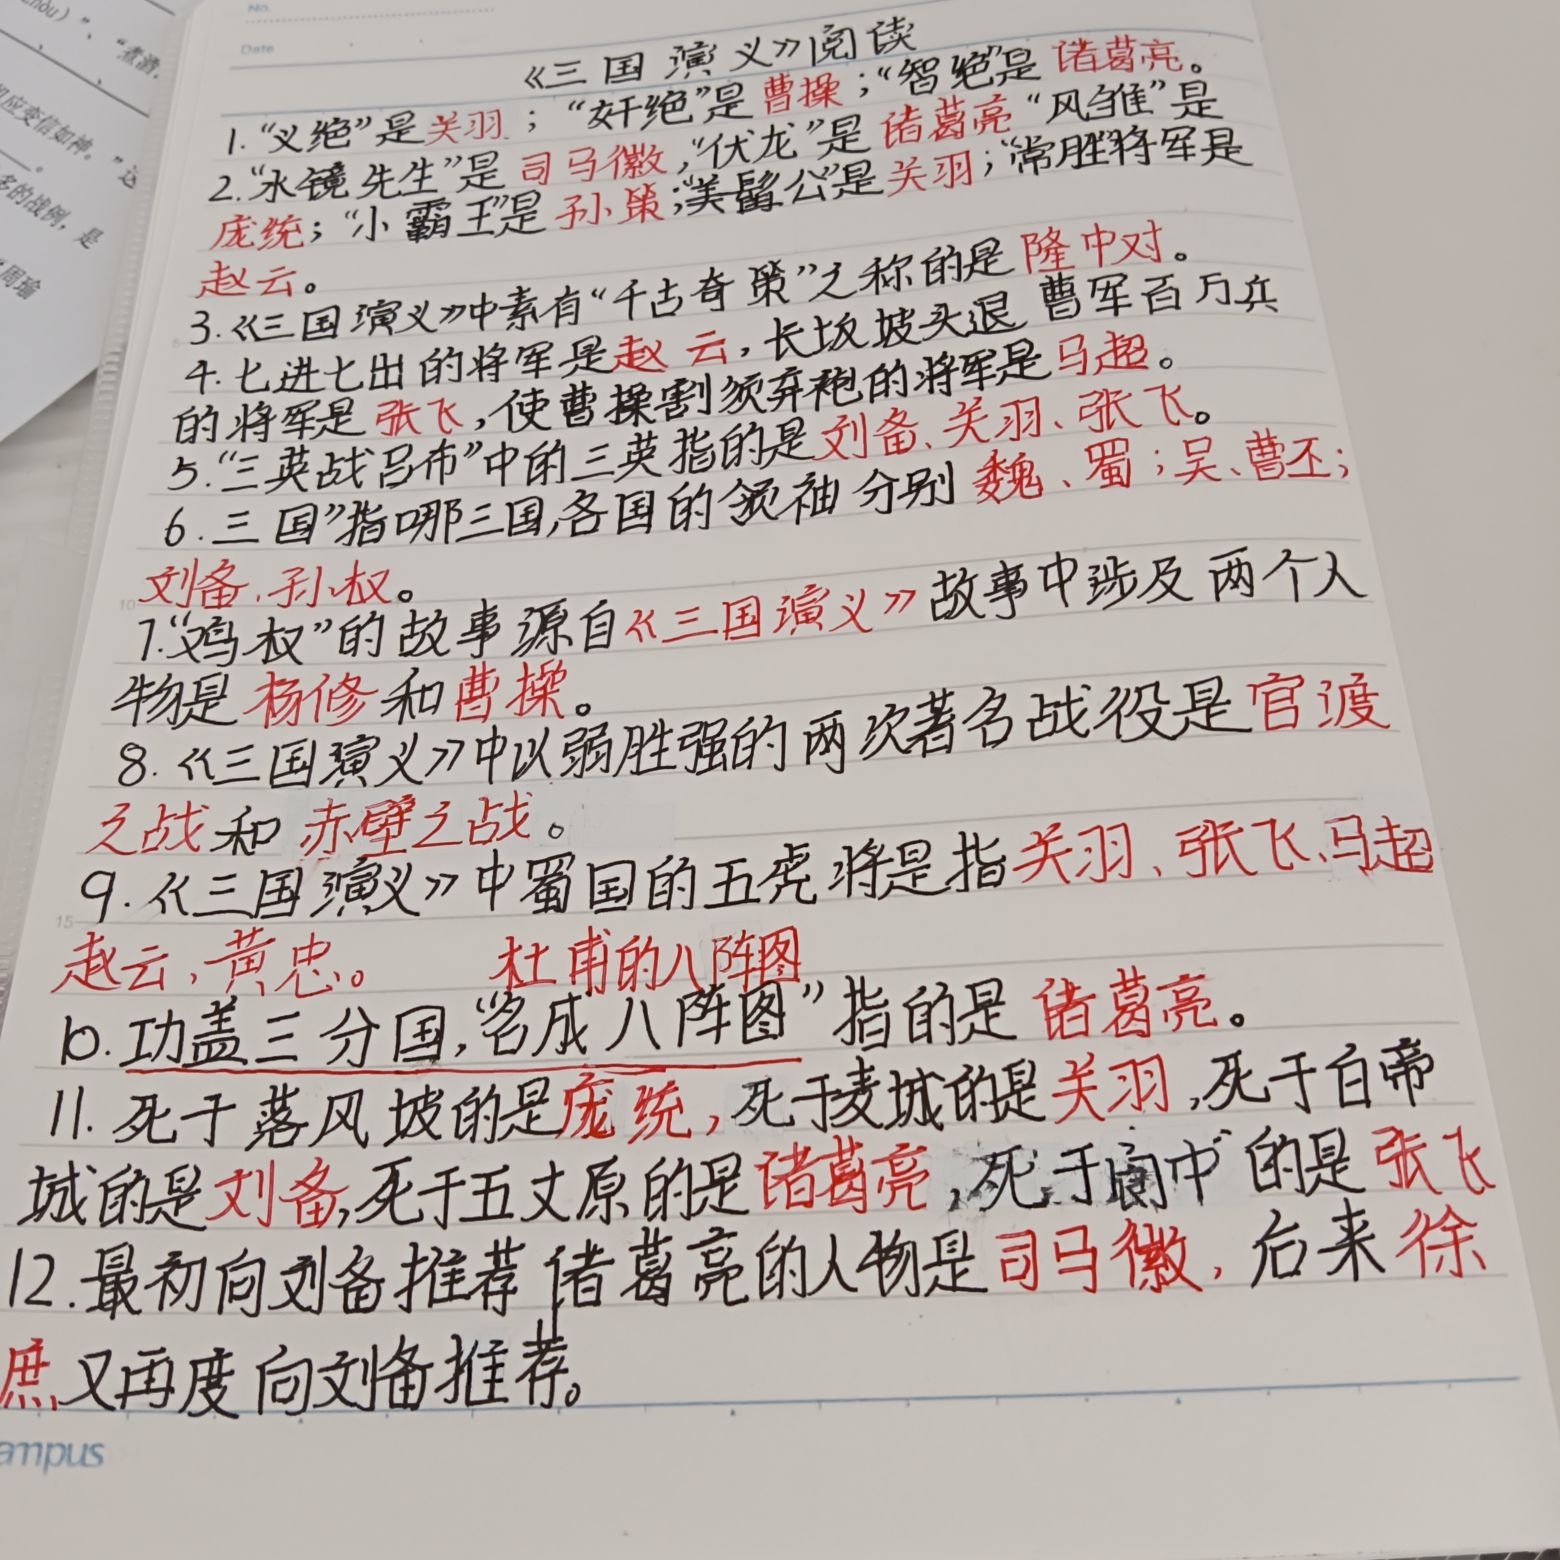 No.
Date
《三国演义》阅读
1.“义绝”是关羽；“奸绝”是曹操；“智绝”是诸葛亮。
2.“水镜先生”是司马徽，“伏龙”是诸葛亮“风雏”是
庞统；“小霸王”是孙策；“美髯公”是关羽；“常胜”将军是
赵云。
3.《三国演义》中素有“千古奇策”之称的是隆中对。
4.七进七出的将军是赵云，长坂坡头退曹军百万兵
的将军是张飞，使曹操割须弃袍的将军是马超。
5.“三英战吕布”中的三英指的是刘备、关羽、张飞。
6.三国”指哪三国，各国的领袖分别魏、蜀；吴、曹丕；
刘备、孙权。
7.“鸡权”的故事源自《三国演义》故事中涉及两个人
物是杨修和曹操。
8.《三国演义》中以弱胜强的两次著名战役是官渡
之战和赤壁之战。
9.《三国演义》中蜀国的五虎将是指关羽、张飞、马超
赵云，黄忠。 杜甫的八阵图
10.功盖三分国，“名成八阵图”指的是诸葛亮。
11.死于落风坡的是庞统，死于麦城的是关羽，死于白帝
城的是刘备，死于五丈原的是诸葛亮，死于阆中的是张飞
12.最初向刘备推荐诸葛亮的人物是司马徽，后来徐
庶又再度向刘备推荐。
ampus
zhou）”、“煮酒，
应变信如神。”这
多的战例，是
“周瑜